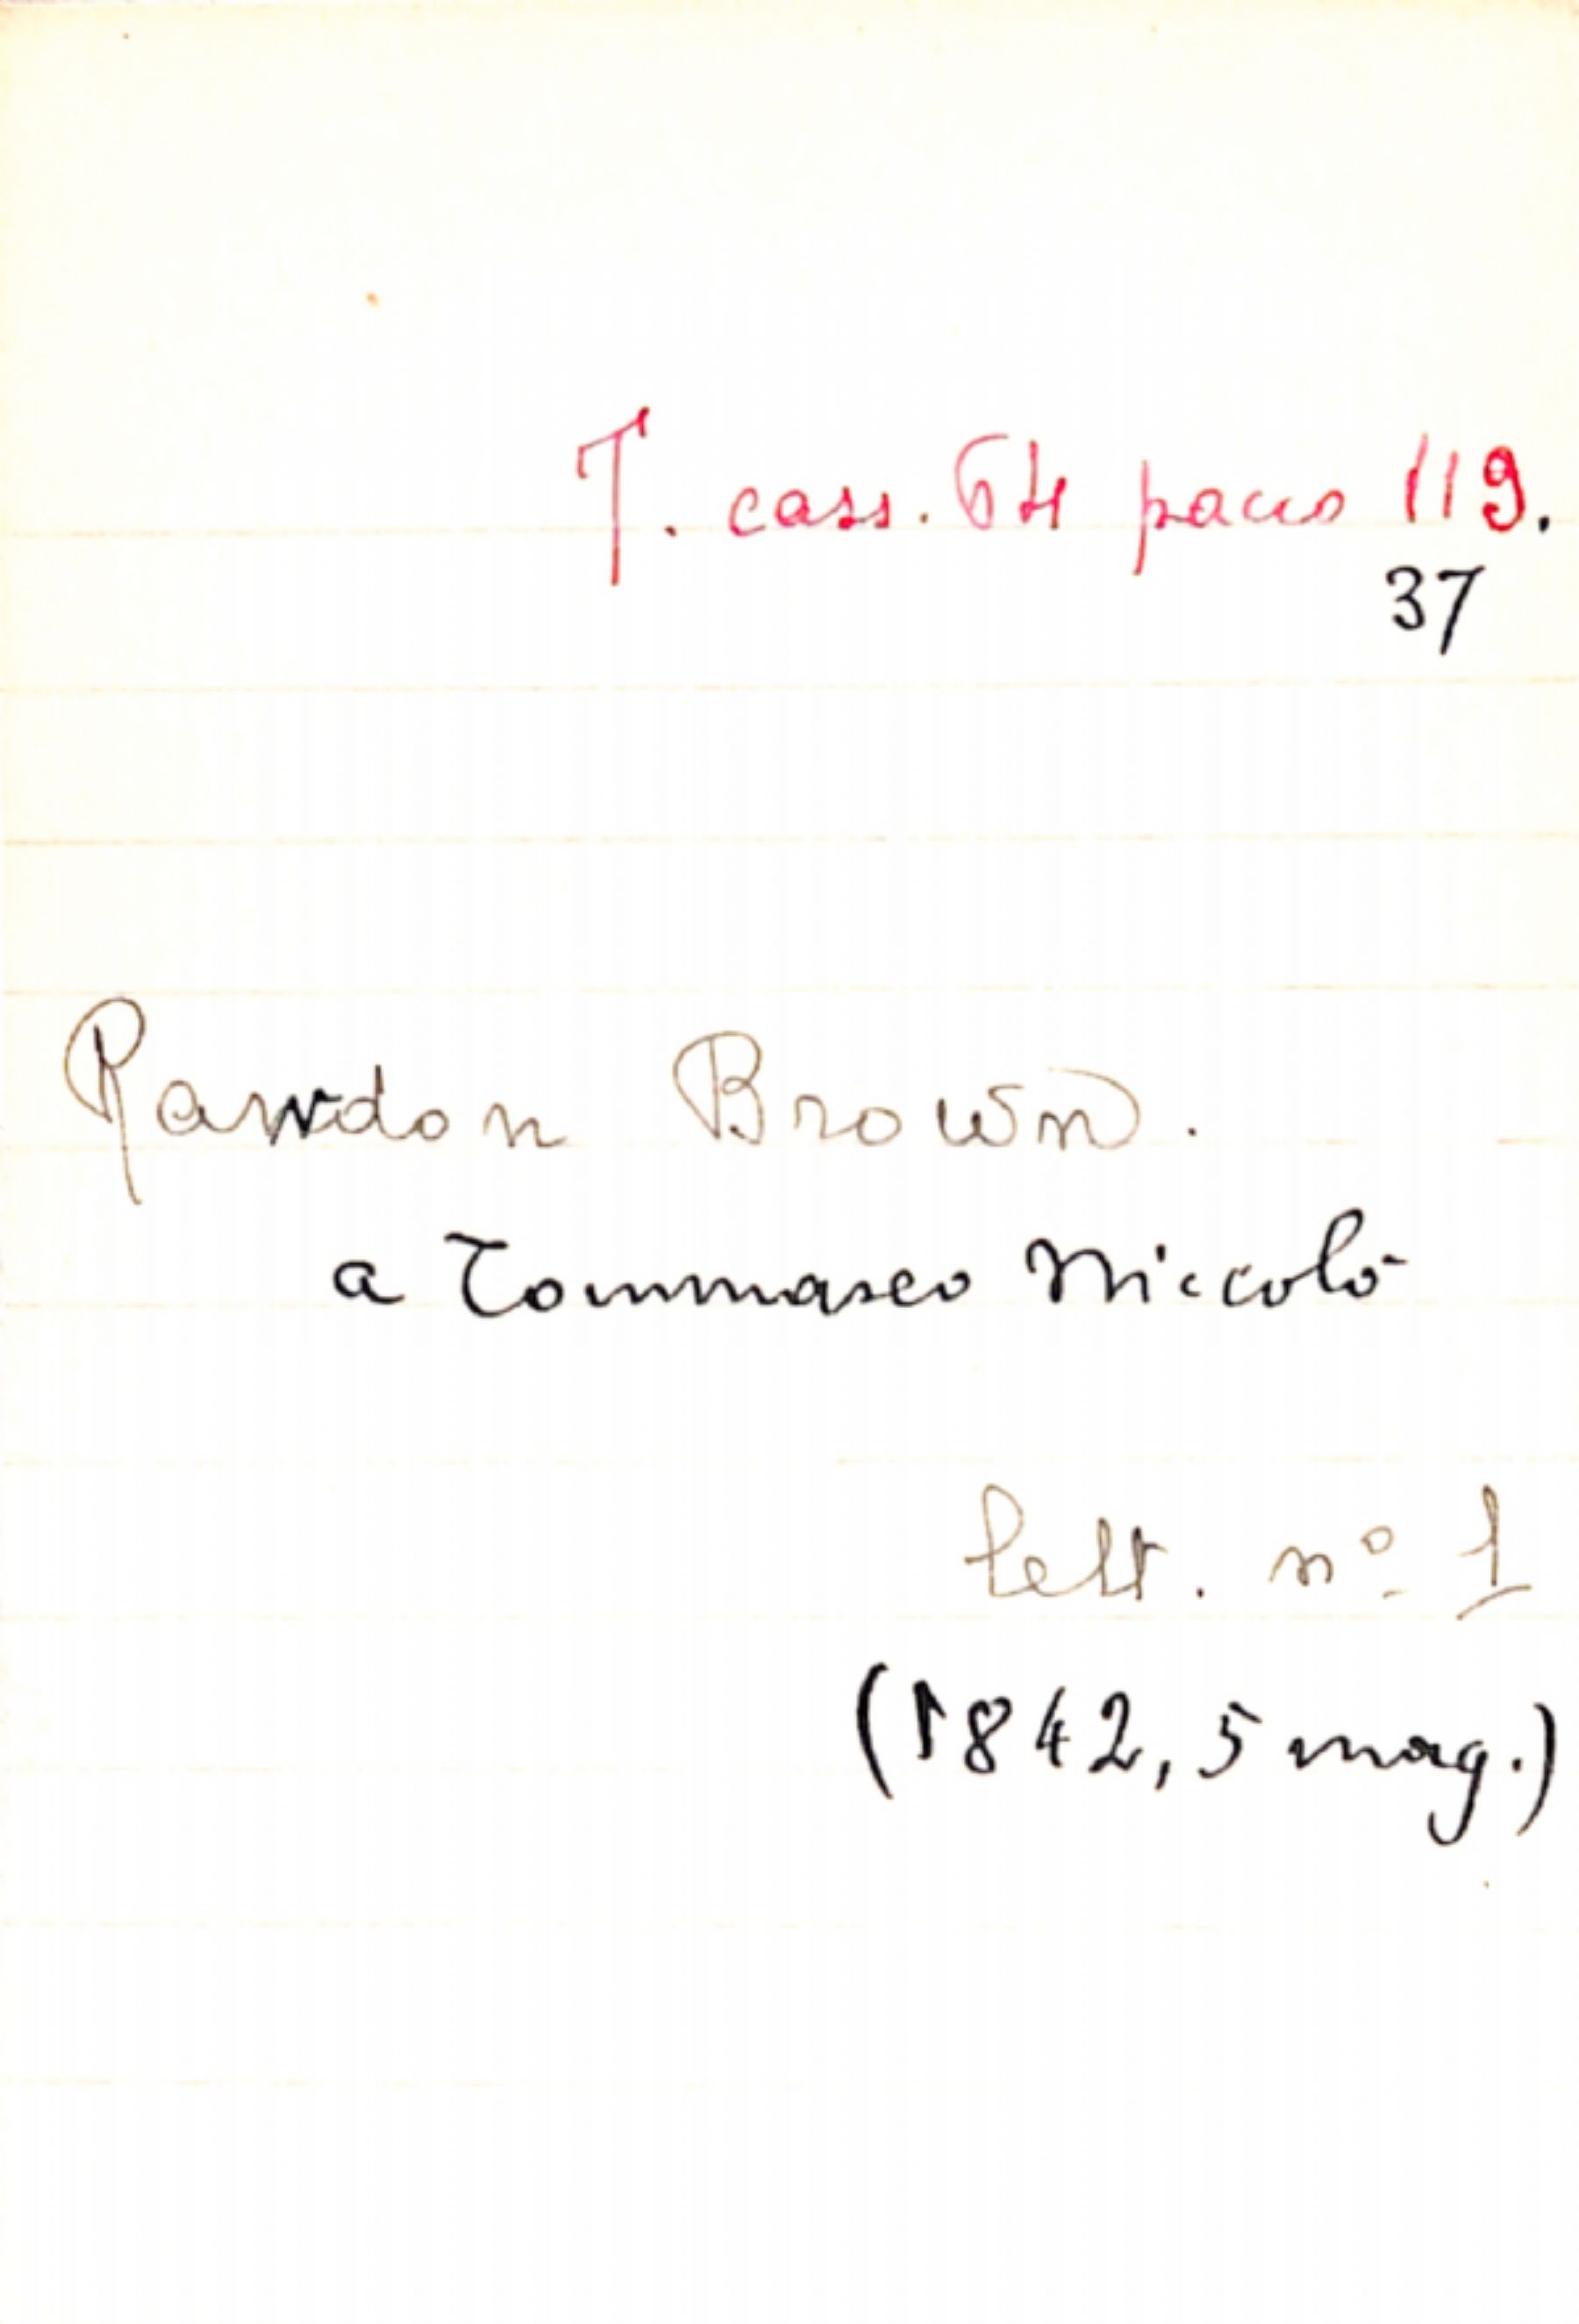 T. cass. 64 pacco 119.
37
Rawdon Brown.
a Tommaseo Niccolò
lett. nº 1
(1842, 5 mag.)